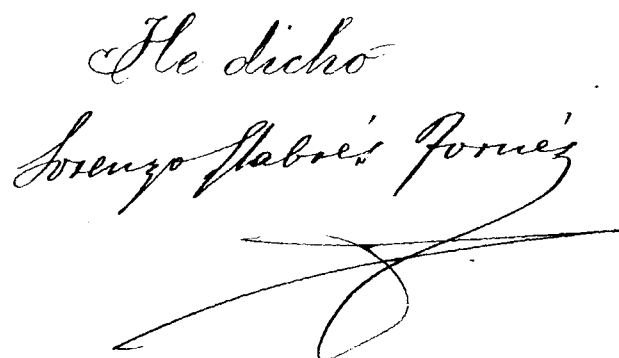 He dicho
Lorenzo Llabrés Fornés